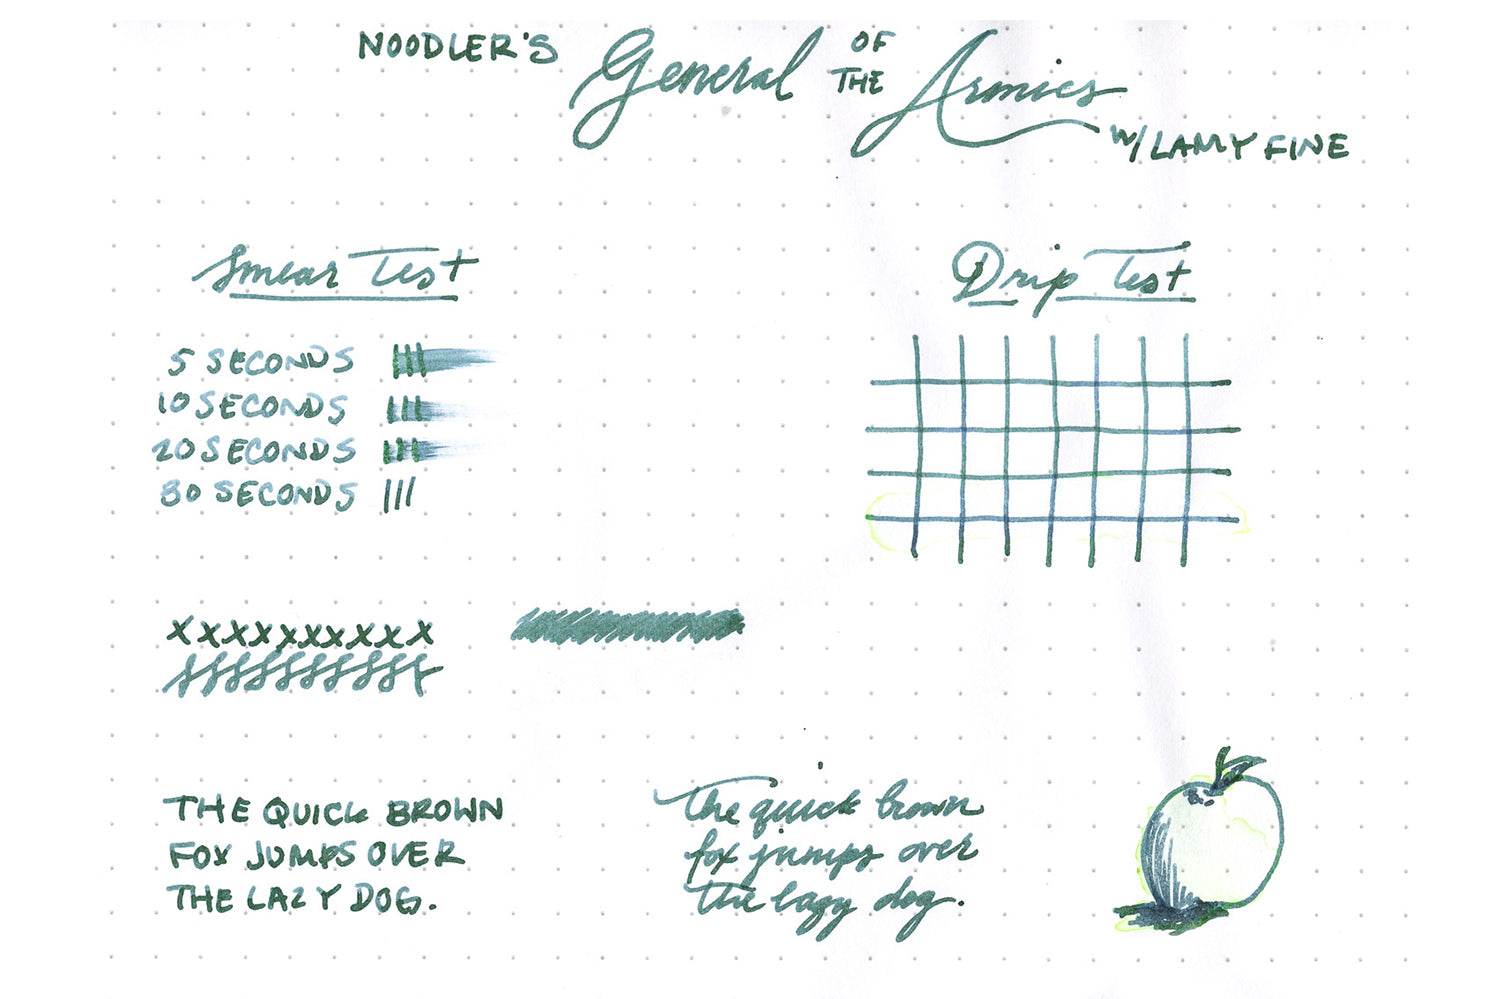 NOODLER'S General OF THE Armies
W/ LAMY FINE
Smear Test
5 SECONDS
10 SECONDS
20 SECONDS
30 SECONDS
Drip Test
xxxxxxxxxxx
THE QUICK BROWN
FOX JUMPS OVER
THE LAZY DOG.
The quick brown
fox jumps over
the lazy dog.